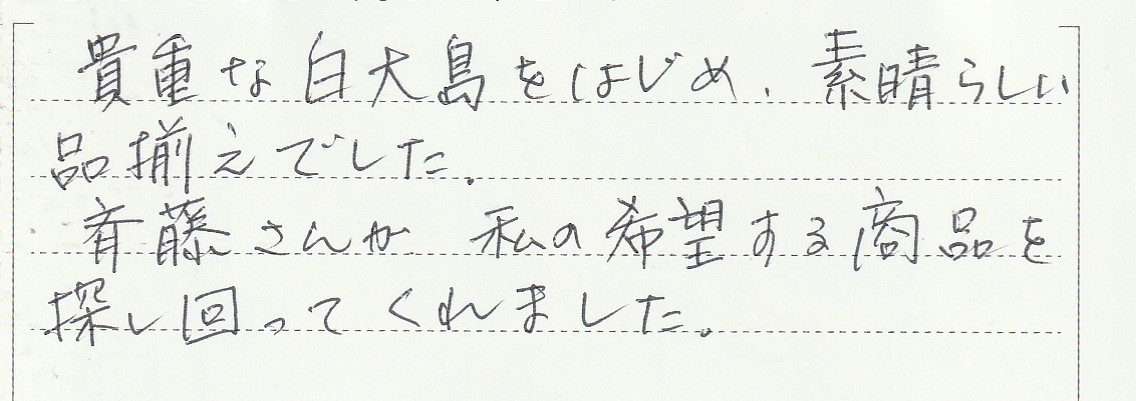 貴重な白大島をはじめ、素晴らしい
品揃えでした。
斉藤さんが、私の希望する商品を
探し回ってくれました。